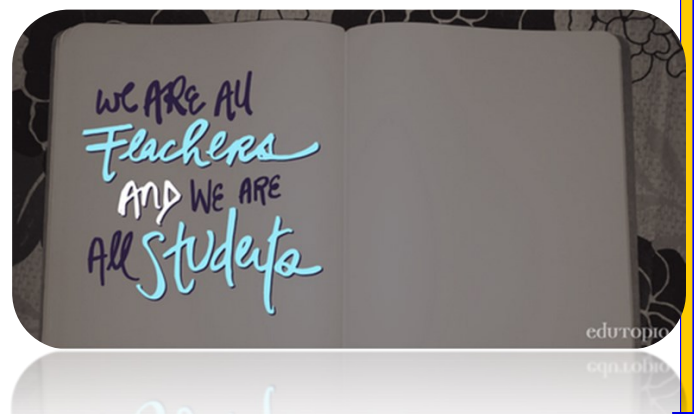 we ARE All
Teachers
AND WE ARE
All Students
edutopia